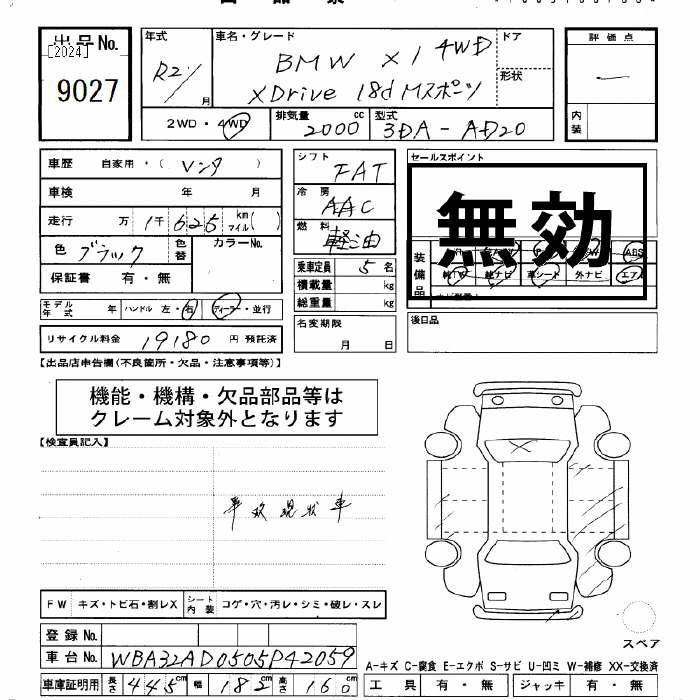 出品No.
[2024]
9027
年式
R2 1 月
車名・グレード
BMW X1 4WD
XDrive 18d Mスポーツ
ドア
形状
評価点
—
内装
2WD・4WD
排気量 2000 cc
型式 3DA-AD20
車歴 自家用・( レンタ )
車検 年 月
走行 万 1千 6 2 5 km マイル( )
色 ブラック
色替
カラーNo.
保証書 有・無
モデル年式 年 ハンドル 左・右 ディーラー・並行
リサイクル料金 19180 円 預託済
シフト FAT
冷房 AAC
燃料 軽油
乗車定員 5 名
積載量 kg
総重量 kg
名変期限
月 日
セールスポイント
無効
装備品
ABS
革シート 外ナビ エア
後日品
【出品店申告欄(不良箇所・欠品・注意事項等)】
機能・機構・欠品部品等は
クレーム対象外となります
【検査員記入】
事故現状車
FW キズ・トビ石・割レX シート内装 コゲ・穴・汚レ・シミ・破レ・スレ
登録No.
車台No. WBA32AD0505P42059
車庫証明用 長さ 445cm 幅 182cm 高さ 160cm
スペア
A-キズ C-腐食 E-エクボ S-サビ U-凹ミ W-補修 XX-交換済
工具 有・無 ジャッキ 有・無